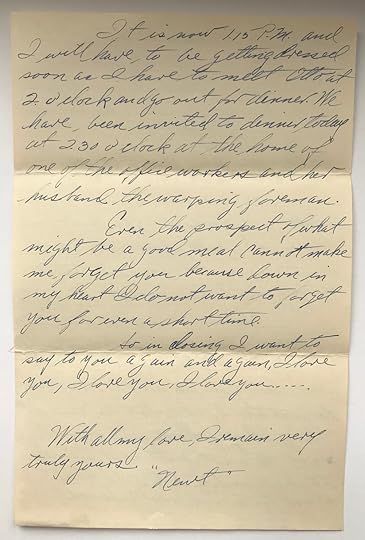 It is now 1,15 P.M. and
I will have, to be getting dressed
soon as I have to meet Otto at
2. o'clock and go out for dinner. We
have, been invited to dinner today
at 2.30 o'clock at the home of
one of the office workers and her
husband, the warping foreman.
Even the prospect of what
might be a good meal cannot make
me forget you because down in
my heart I do not want to forget
you for even a short time.
So in closing I want to
say to you again and again, I love
you, I love you, I love you.....
With all my love, I remain very
truly yours
"Newt"